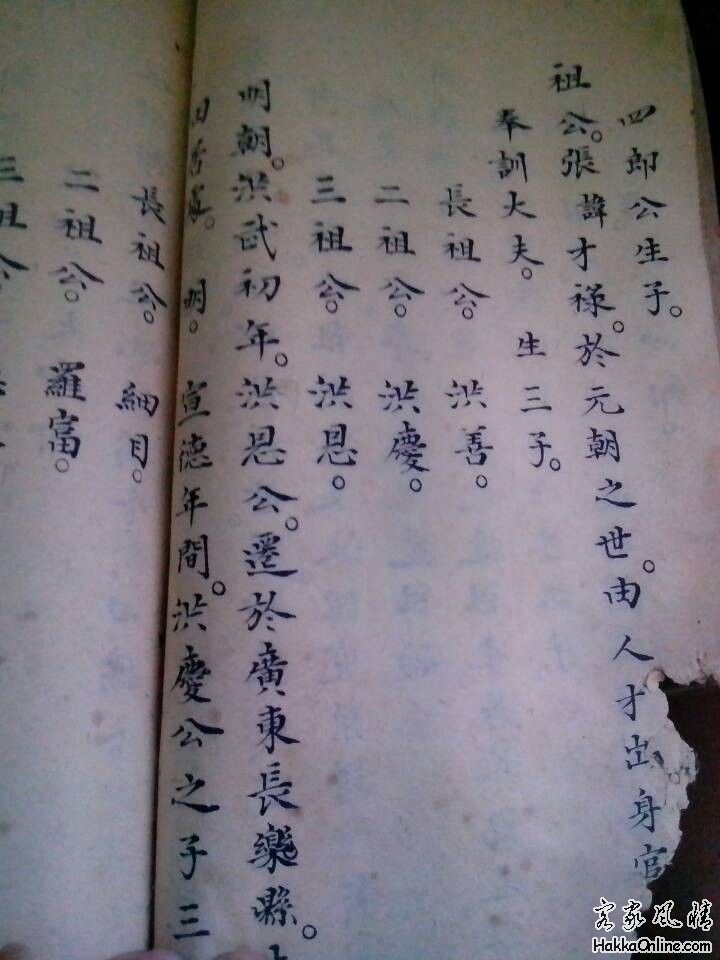 四郎公生子。
祖公。張諱才祿。於元朝之世。由人才出身官
奉訓大夫。 生三子。
長祖公。 洪善。
二祖公。 洪慶。
三祖公。 洪恩。
明朝。洪武初年。洪恩公。遷於廣東長樂縣。
明。宣德年間。洪慶公之子三
長祖公。 細目。
二祖公。 羅富。
三祖公。
客家風情
HakkaOnline.com